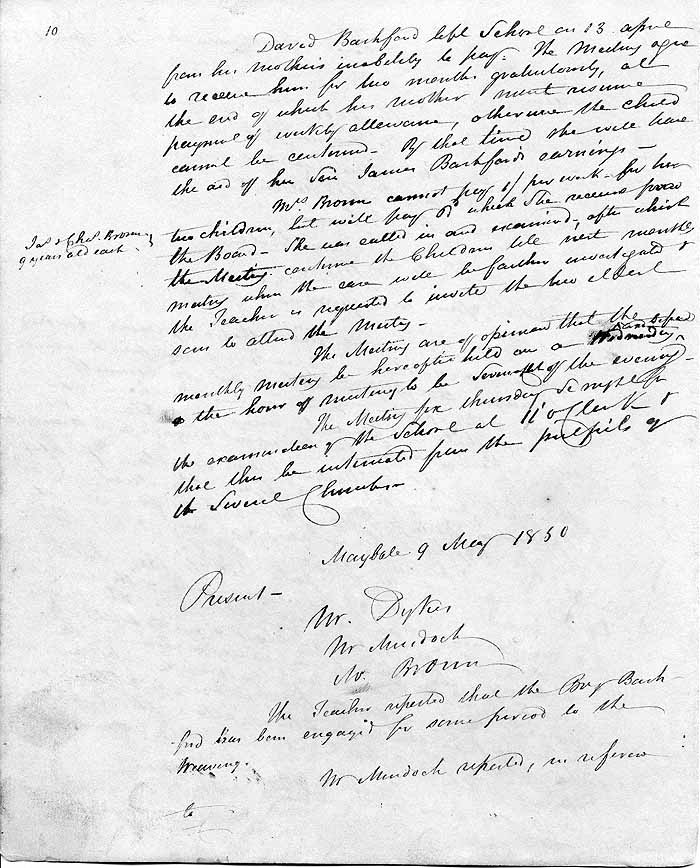 10
David Bachford left School on 23 April
from his mother's inability to pay. The Meeting agree
to receive him for two months gratuitously, at
the end of which his mother must resume
payment of weekly allowance, otherwise the child
cannot be continued - By that time she will have
the aid of her son James Bachford's earnings -
Mrs Brown cannot pay 1/ per week for her
Jas & Chas. Brown
9 years old each
two children, but will pay which she receives from
the Board - She was called in and examined, after which
the Meeting continue the Children till next monthly
meeting when the case will be farther investigated &
the Teacher is requested to invite the two eldest
sons to attend the Meeting -
The Meeting are of opinion that the
monthly meeting be hereafter held on a Wednesday
& the hour of meeting to be Seven of the evening -
The Meeting fix thursday for
the examination of the School at 11 o'Clock &
that this be intimated from the pulpits of
the Several Churches -
Maybole 9 May 1850
Present -
Mr. Dykes
Mr Murdoch
Mr. Brown
The Teacher reported that the Boy Bach-
ford has been engaged for some period to the
Weaving.
Mr Murdoch reported, in reference
to